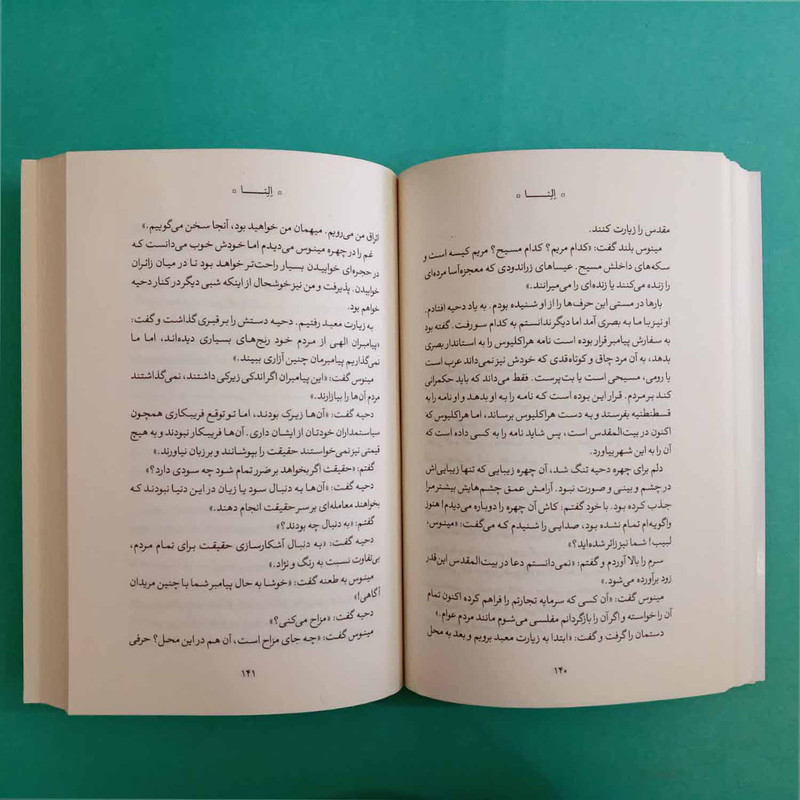 الِنا
مقدس را زیارت کنند.
مینوس بلند گفت: «کدام مریم؟ کدام مسیح؟ مریم کیسه است و
سکه‌های داخلش مسیح. عیساهای زراندودی که معجزه‌آسا مرده‌ای
را زنده می‌کنند یا زنده‌ای را می‌میرانند.»
بارها در مستی این حرف‌ها را از او شنیده بودم. به یاد دحیه افتادم.
او نیز با ما به بصری آمد اما دیگر ندانستم به کدام سو رفت. گفته بود
به سفارش پیامبر قرار بوده است نامه هراکلیوس را به استاندار بصری
بدهد، به آن مرد چاق و کوتاه‌قدی که خودش نیز نمی‌داند عرب است
یا رومی، مسیحی است یا بت‌پرست. فقط می‌داند که باید حکمرانی
کند بر مردم. قرار این بوده است که نامه را به او بدهد و او نامه را به
قسطنطنیه بفرستد و به دست هراکلیوس برساند، اما هراکلیوس
اکنون در بیت‌المقدس است، پس شاید نامه را به کسی داده است که
آن را به این شهر بیاورد.
دلم برای چهره دحیه تنگ شد، آن چهره زیبایی که تنها زیبایی‌اش
در چشم و بینی و صورت نبود. آرامش عمق چشم‌هایش بیشتر مرا
جذب کرده بود. با خود گفتم: کاش آن چهره را دوباره می‌دیدم! هنوز
واگویه‌ام تمام نشده بود، صدایی را شنیدم که می‌گفت: «مینوس،
لبیب! شما نیز زائر شده‌اید؟»
سرم را بالا آوردم و گفتم: «نمی‌دانستم دعا در بیت‌المقدس این‌قدر
زود برآورده می‌شود.»
مینوس گفت: «آن کسی که سرمایه تجارتم را فراهم کرده اکنون تمام
آن را خواسته و اگر آن را بازگردانم مفلسی می‌شوم مانند مردم عوام.»
دستمان را گرفت و گفت: «ابتدا به زیارت معبد برویم و بعد به محل
۱۴۰
الِنا
اتراق من می‌رویم. میهمان من خواهید بود، آنجا سخن می‌گوییم.»
غم را در چهره مینوس می‌دیدم اما خودش خوب می‌دانست که
در حجره‌ای خوابیدن بسیار راحت‌تر خواهد بود تا در میان زائران
خوابیدن. پذیرفت و من نیز خوشحال از اینکه شبی دیگر در کنار دحیه
خواهم بود.
به زیارت معبد رفتیم. دحیه دستش را بر قبری گذاشت و گفت:
«پیامبران الهی از مردم خود رنج‌های بسیاری دیده‌اند، اما ما
نمی‌گذاریم پیامبرمان چنین آزاری ببیند.»
مینوس گفت: «این پیامبران اگر اندکی زیرکی داشتند، نمی‌گذاشتند
مردم آن‌ها را بیازارند.»
دحیه گفت: «آن‌ها زیرک بودند، اما تو توقع فریبکاری همچون
سیاستمداران خودتان از ایشان داری. آن‌ها فریبکار نبودند و به هیچ
قیمتی نیز نمی‌خواستند حقیقت را بپوشانند و بر زبان نیاورند.»
گفتم: «حقیقت اگر بخواهد بر ضرر تمام شود چه سودی دارد؟»
دحیه گفت: «آن‌ها به دنبال سود یا زیان در این دنیا نبودند که
بخواهند معامله‌ای بر سر حقیقت انجام دهند.»
گفتم: «به دنبال چه بودند؟»
دحیه گفت: «به دنبال آشکارسازی حقیقت برای تمام مردم،
بی‌تفاوت نسبت به رنگ و نژاد.»
مینوس به طعنه گفت: «خوشا به حال پیامبر شما با چنین مریدان
آگاهی!»
دحیه گفت: «مزاح می‌کنی؟»
مینوس گفت: «چه جای مزاح است، آن هم در این محل؟ حرفی
۱۴۱